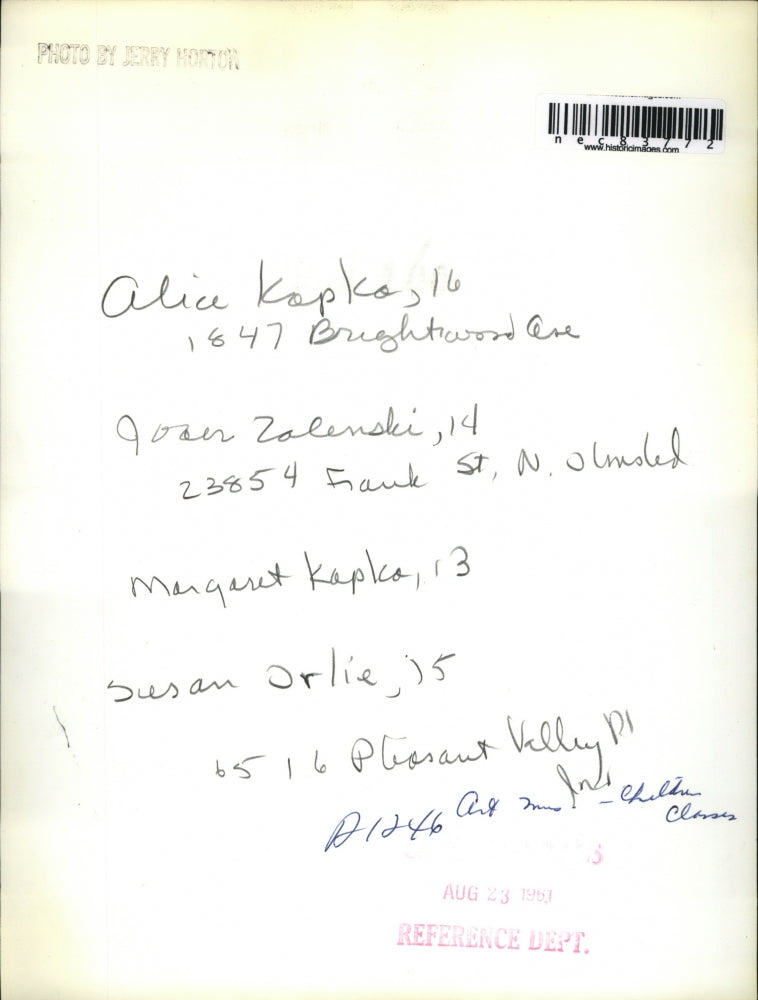 PHOTO BY JERRY HORTON
nec83772
www.historicimages.com
Alice Kapka, 16
1847 Brightwood Ave
Zalenski, 14
23854 Frank St, N. Olmsted
Margaret Kapka, 13
Susan Orlie, 15
6516 Pleasant Valley Rd
Art Mus. - Children
Classes
AUG 23 1961
REFERENCE DEPT.